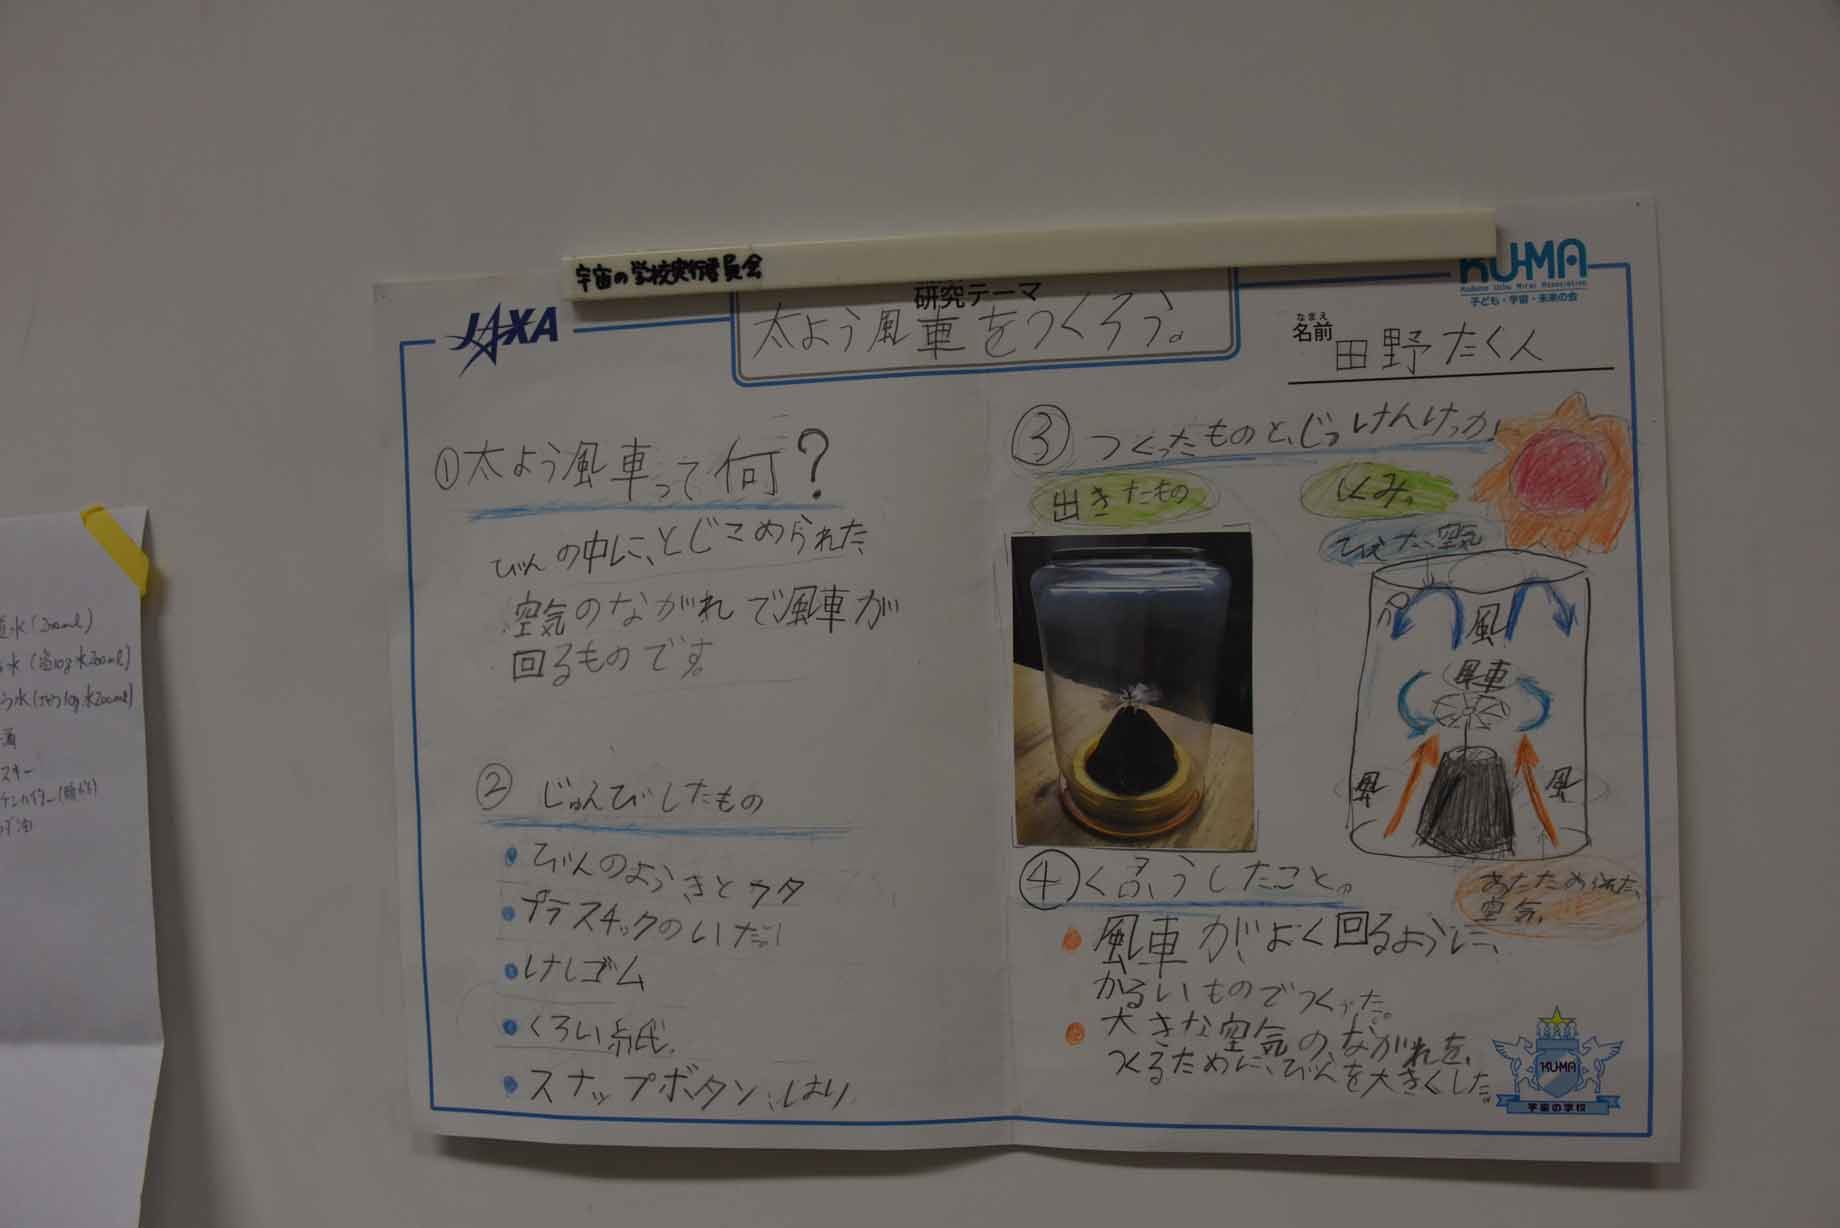 宇宙の学校実行委員会
JAXA
研究テーマ
太よう風車をつくろう。
KU-MA
Kodomo Uchu Mirai Association
子ども・宇宙・未来の会
なまえ
名前
田野たく人
①太よう風車って何?
びんの中に、とじこめられた
空気のながれで風車が
回るものです。
②じゅんびしたもの
びんのようきとフタ
プラスチックのいた。
けしゴム
くろい紙
スナップボタン、はり
③つくったものと、じっけんけっか
出きたもの
しくみ。
空気
風
風車
風
風
あたためられた、
空気。
④くふうしたこと。
風車が、よく回るように、
かるいものでつくった。
大きな空気の、ながれを、
つくるために、びんを大きくした。
KUMA
宇宙の学校
水(200ml)
水(塩10g水200ml)